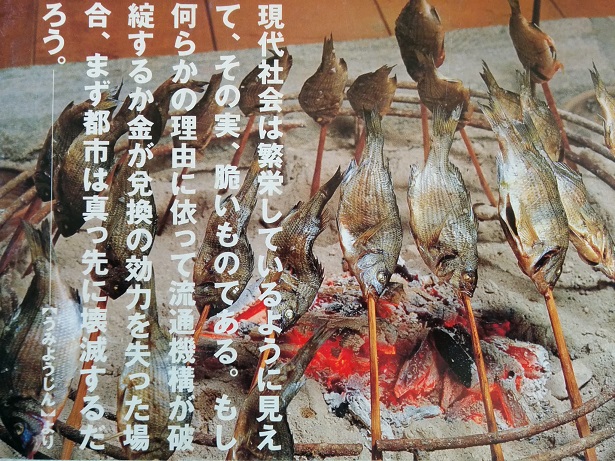 現代社会は繁栄しているように見え
て、その実、脆いものである。もし
何らかの理由に依って流通機構が破
綻するか金が兌換の効力を失った場
合、まず都市は真っ先に壊滅するだ
ろう。――【うみようじん】より